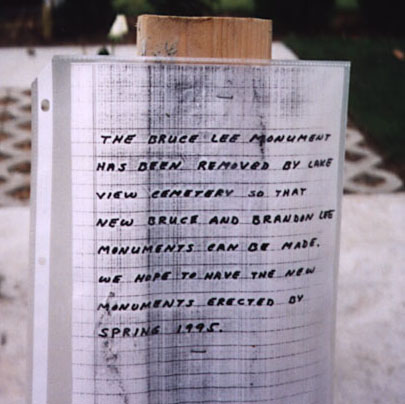 THE BRUCE LEE MONUMENT
HAS BEEN REMOVED BY LAKE
VIEW CEMETERY SO THAT
NEW BRUCE AND BRANDON LEE
MONUMENTS CAN BE MADE.
WE HOPE TO HAVE THE NEW
MONUMENTS ERECTED BY
SPRING 1995.